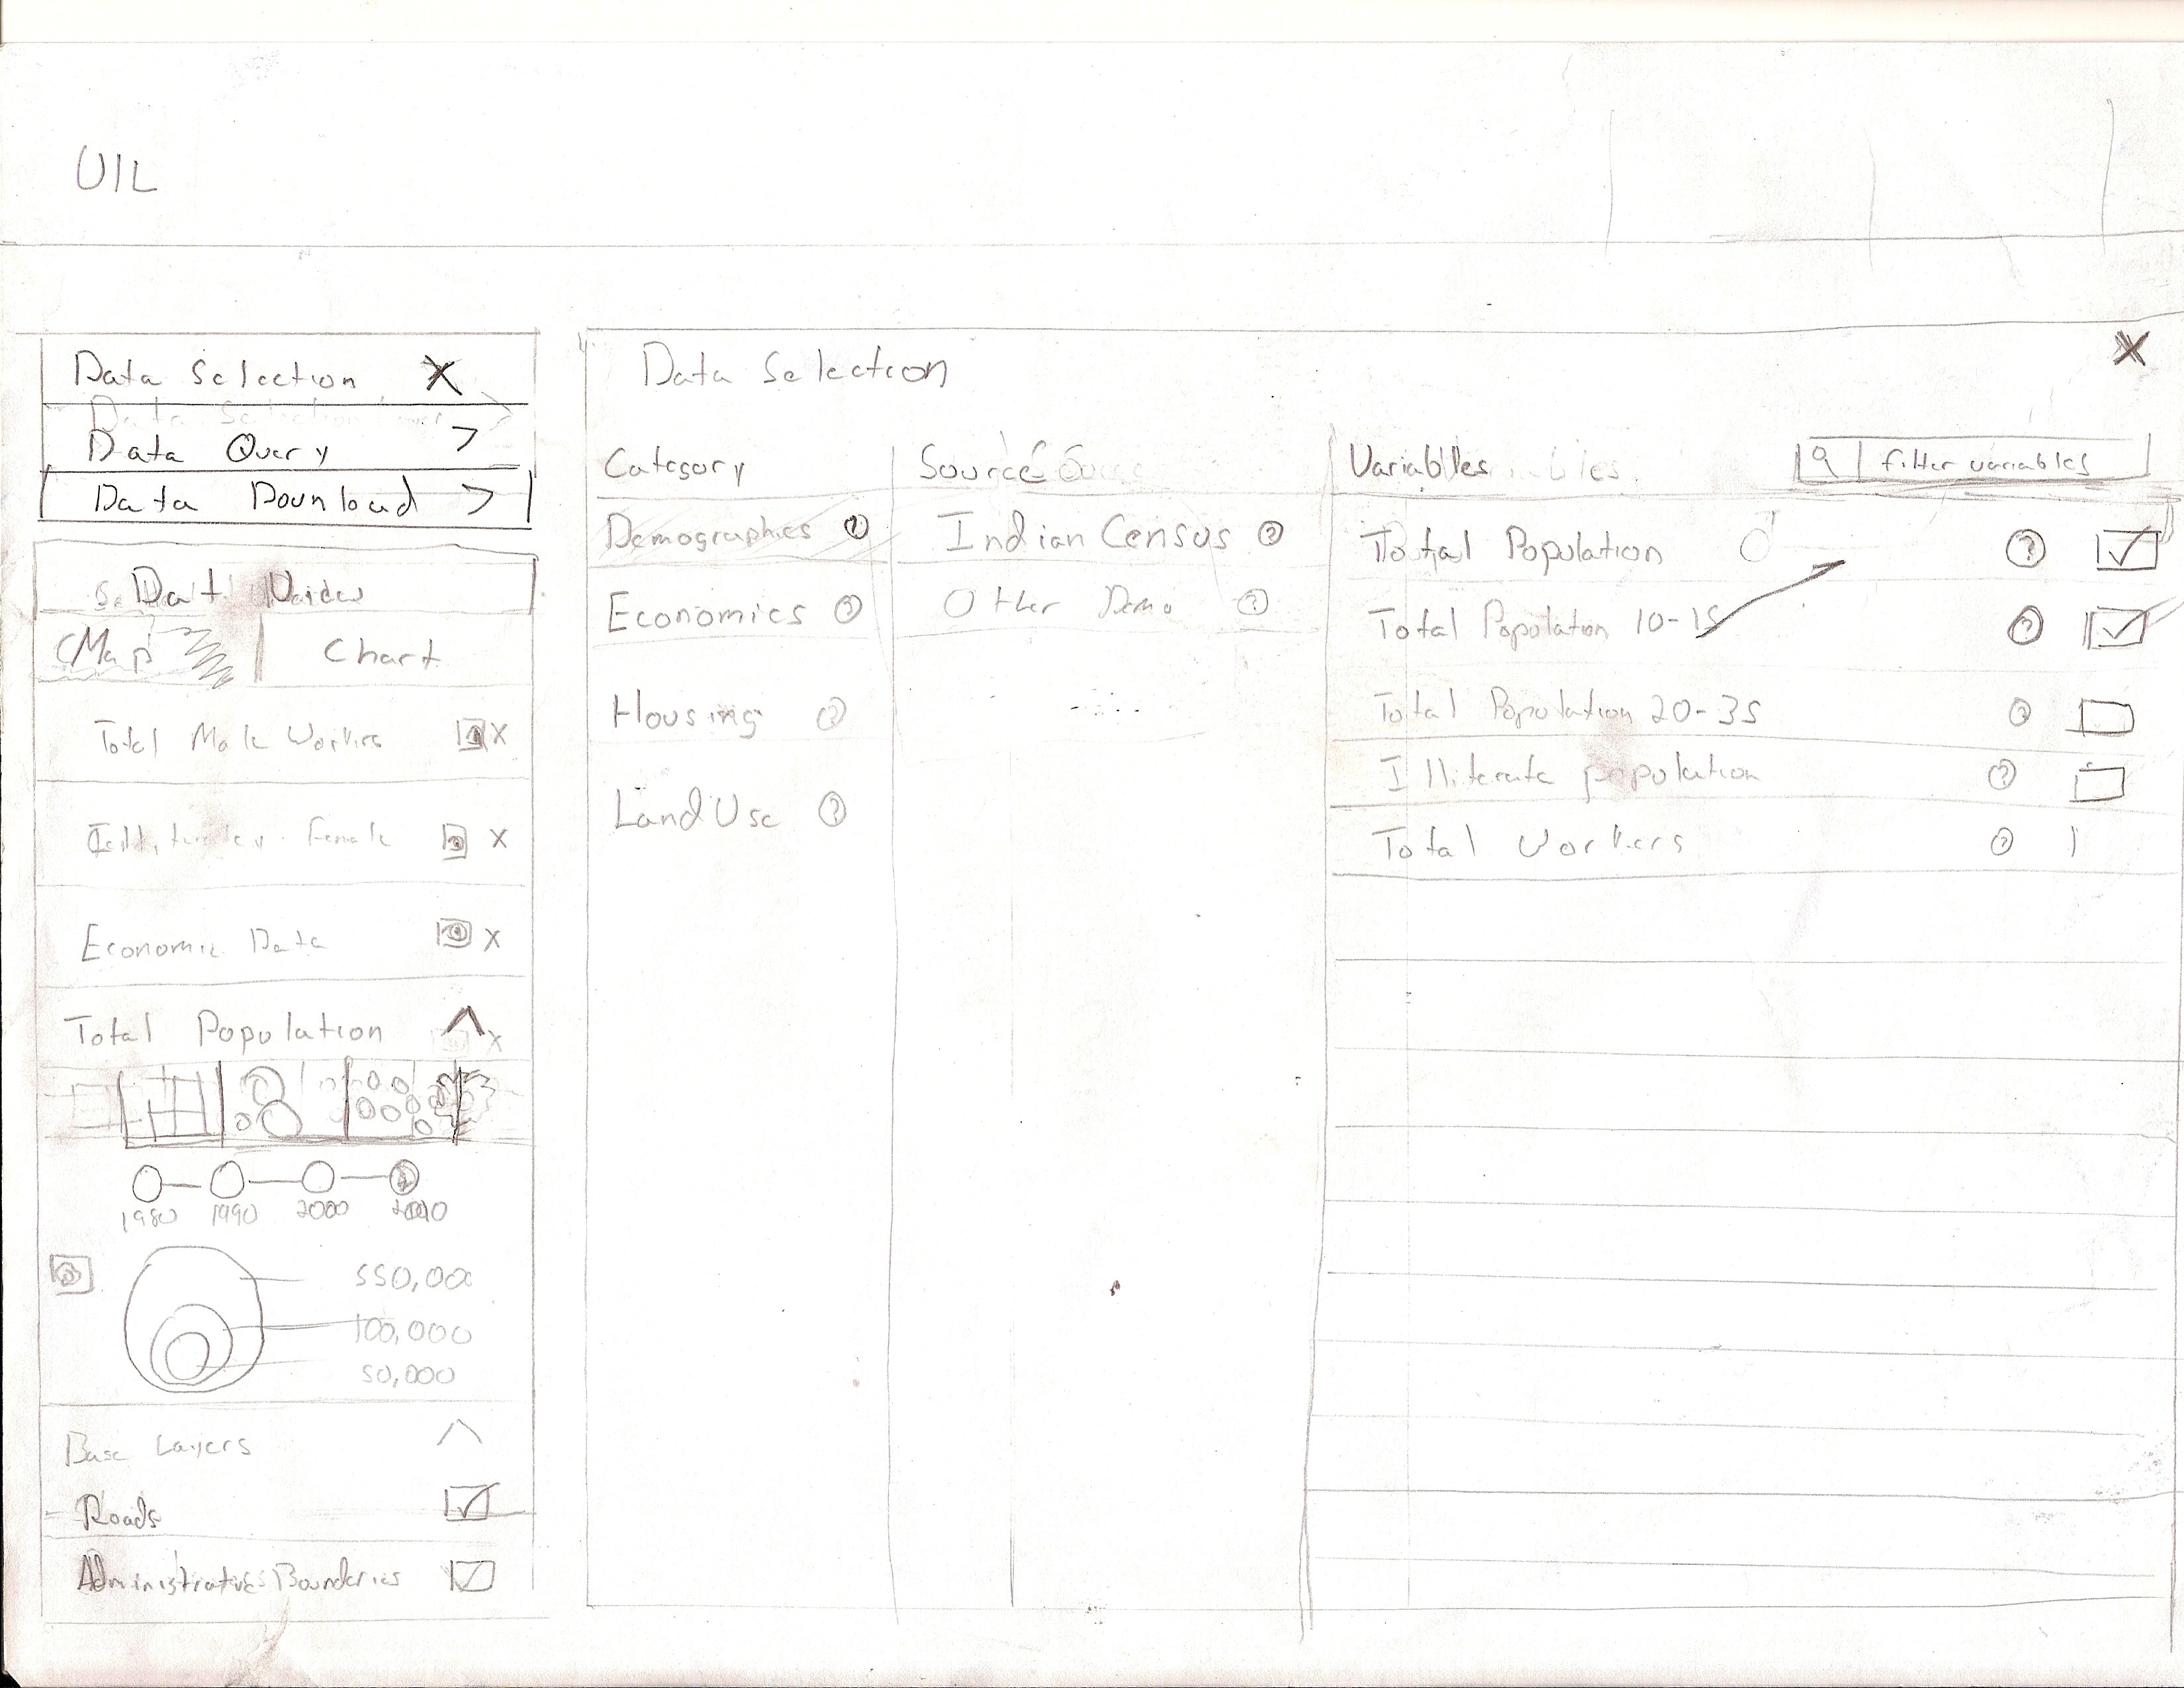 UIL
Data Selection X
Data Query >
Data Download >
Map
Chart
Total Male Workers X
Female X
Economic Data X
Total Population
X
1980 1990 2000 2010
550,000
100,000
50,000
Base Layers
Roads
Administrative Boundaries
Data Selection X
Category
Demographics ?
Economics ?
Housing ?
Land Use ?
Source
Indian Census ?
Other Demo ?
Variables
filter variables
Total Population ?
Total Population 10-15 ?
Total Population 20-35 ?
Illiterate population ?
Total Workers ?